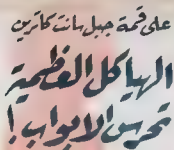 على قمة جبل سانت كاترين
الهياكل العظمية
تحرس الابواب!